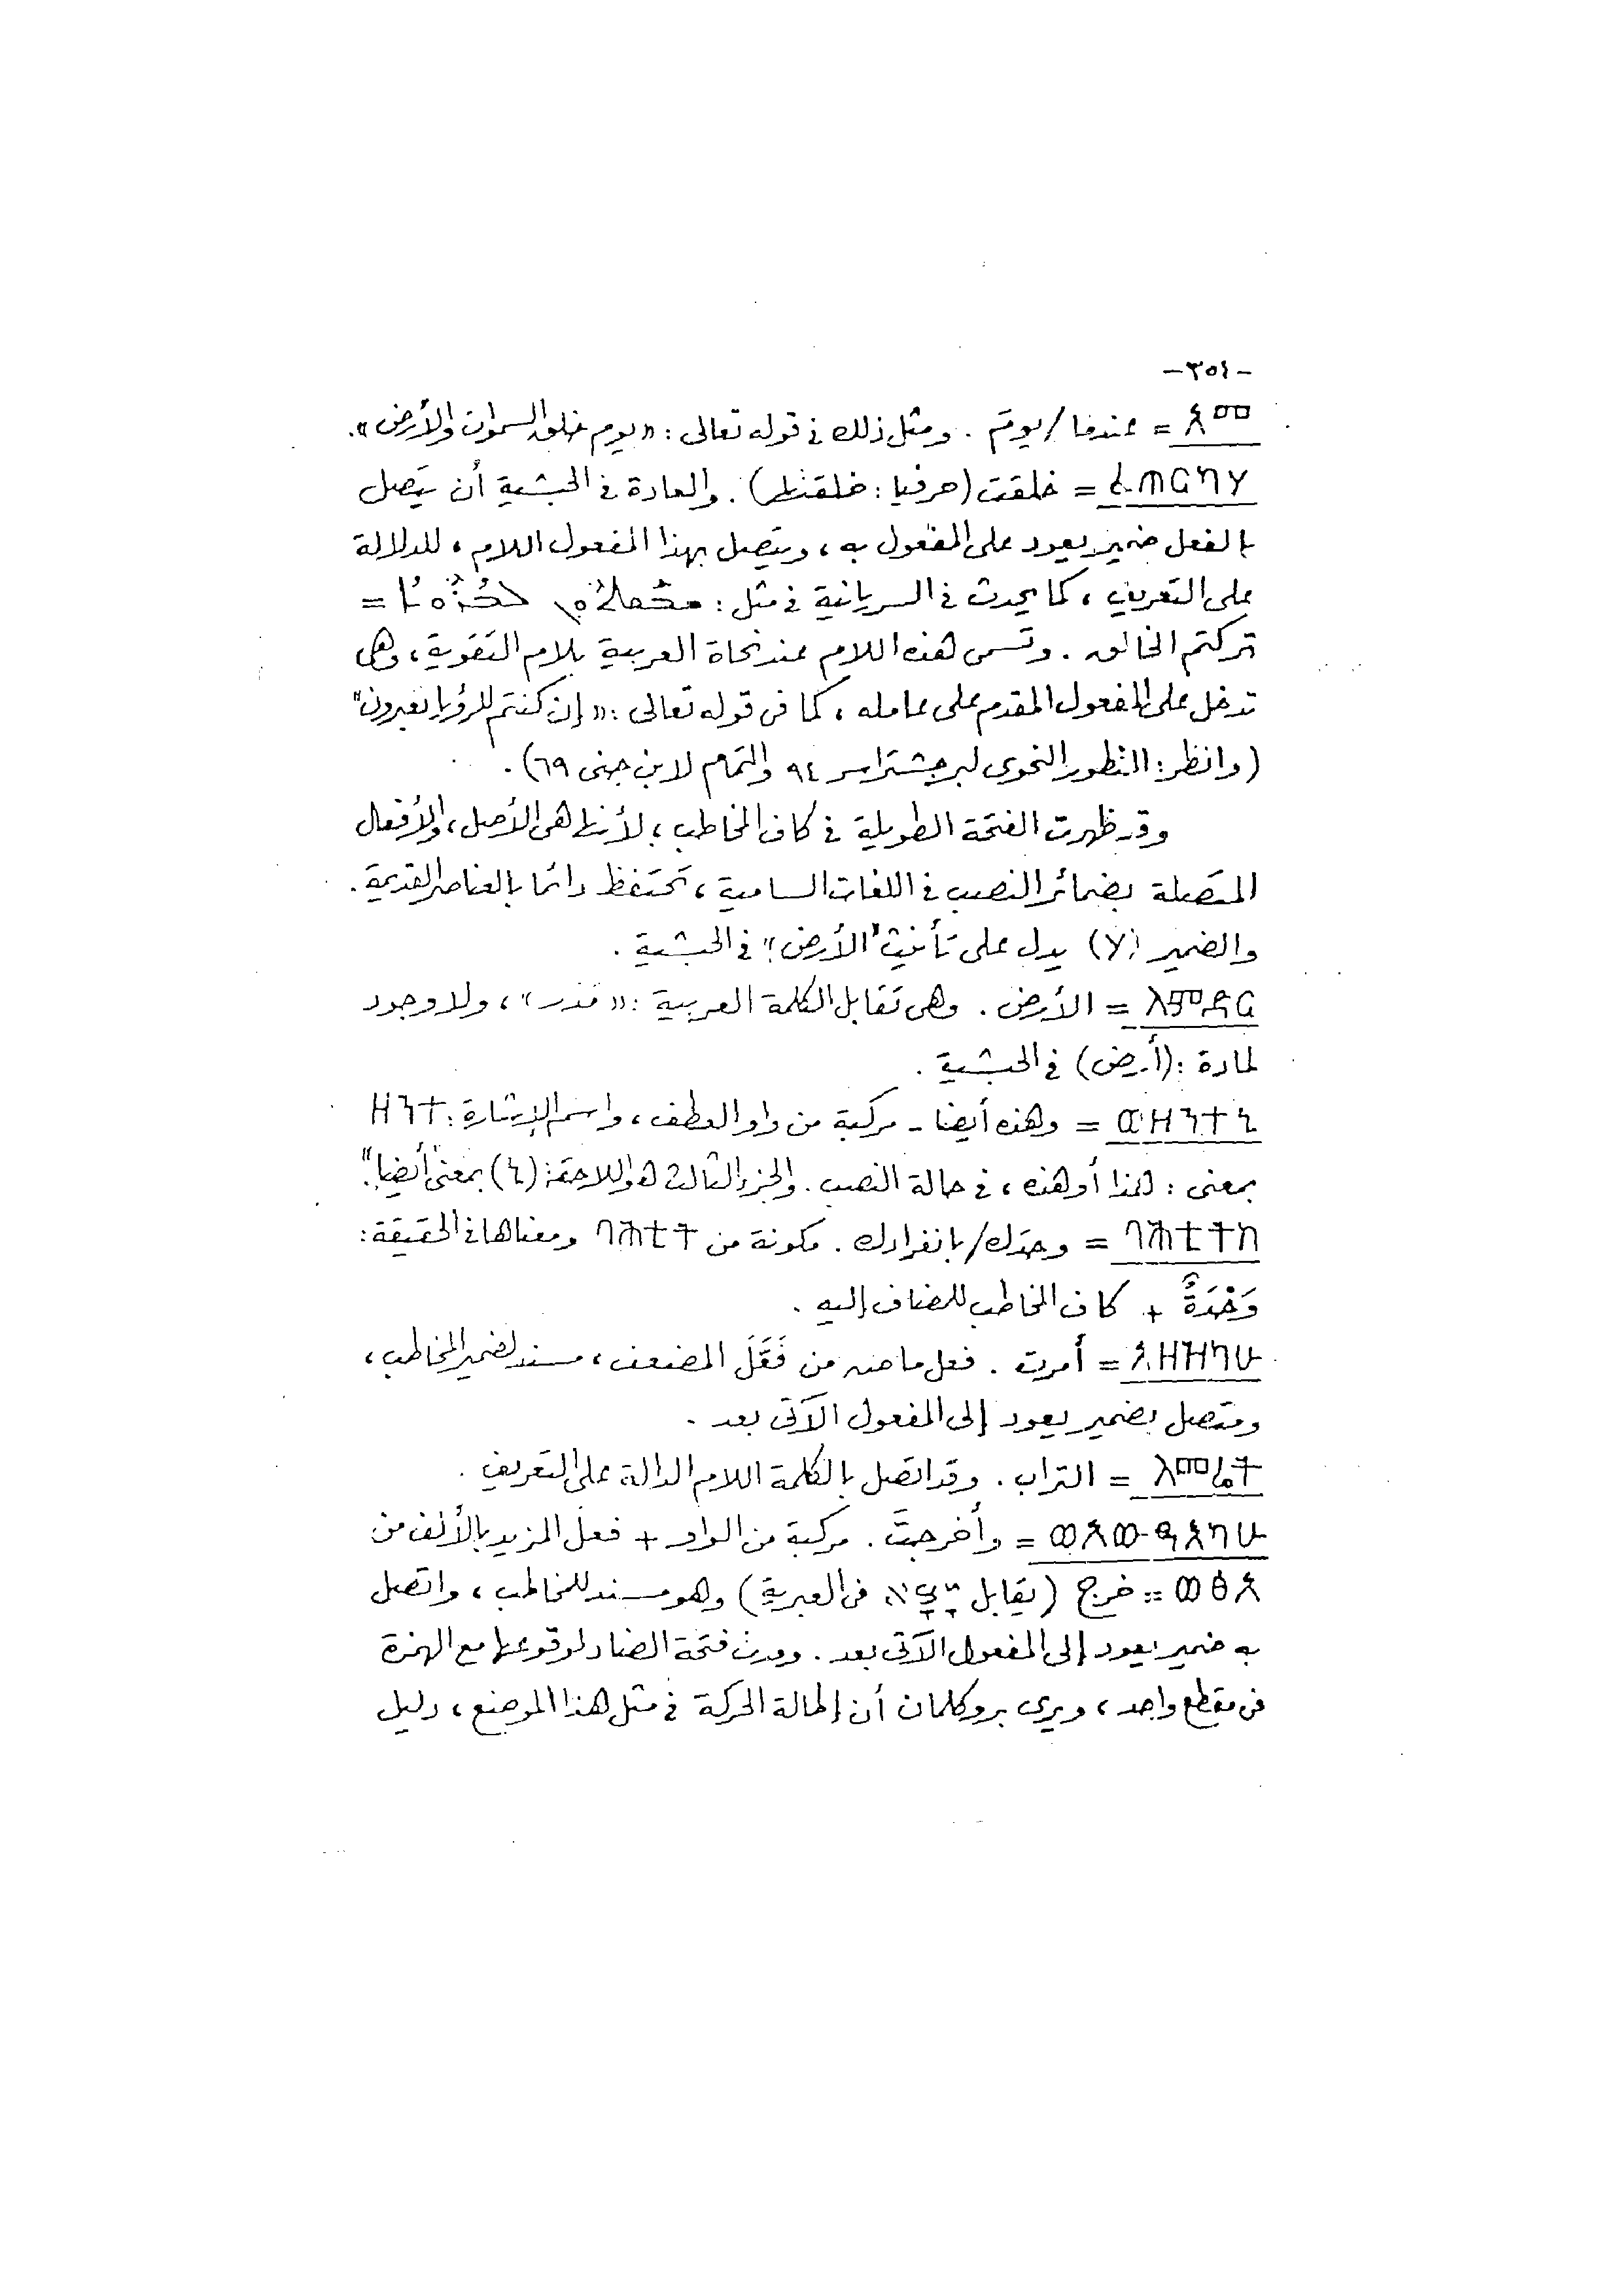 -٣٥٤-
አመ = عندما/يومَ . ومثل ذلك فى قوله تعالى : « يوم خلق السموات والأرض ».
ፈጠርካሃ = خلقت (حرفيا : خلقتها) . والعادة فى الحبشية أن يتصل
بالفعل ضمير يعود على المفعول به ، ويتصل بهذا المفعول اللام ، للدلالة
على التعريف ، كما يحدث فى السريانية فى مثل : =
تركتم الخالق . وتسمى هذه اللام عند نحاة العربية بلام التقوية ، وهى
تدخل على المفعول المقدم على عامله ، كما فى قوله تعالى : « إن كنتم للرؤيا تعبرون »
(وانظر : التطور النحوى لبرجشتراسر ٩٤ والتمام لابن جنى ٦٩) .
وقد ظهرت الفتحة الطويلة فى كاف المخاطب ؛ لأنها هى الأصل ، والأفعال
المتصلة بضمائر النصب فى اللغات السامية ، تحتفظ دائما بالعناصر القديمة .
والضمير (ሃ) يدل على تأنيث "الأرض" فى الحبشية .
ለምድር = الأرض . وهى تقابل الكلمة العربية : « مَدَر » ، ولا وجود
لمادة : (أرض) فى الحبشية .
ወዘንተኒ = وهذه أيضا - مركبة من واو العطف ، واسم الإشارة : ዘንተ
بمعنى : هذا أو هذه ، فى حالة النصب . والجزء الثالث هو اللاحقة : (ኒ) بمعنى "أيضا".
ባሕቲትከ = وحدَك/بانفرادك . مكونة من ባሕቲት ومعناها فى الحقيقة :
وَحْدَةٌ + كاف المخاطب للمضاف إليه .
አዘዝካሁ = أمرت . فعل ماض من فَعَّلَ المضعف ، مسند لضمير المخاطب ،
ومتصل بضمير يعود إلى المفعول الآتى بعد .
ለመሬት = التراب . وقد اتصل بالكلمة اللام الدالة على التعريف .
ወአውፃእካሁ = وأخرجتَ . مركبة من الواو + فعل المزيد بالألف من
ወፅአ = خرج (يقابل יָצָא فى العبرية) وهو مسند للمخاطب ، واتصل
به ضمير يعود إلى المفعول الآتى بعد . ومدت فتحة الضاد لوقوعها مع الهمزة
فى مقطع واحد ، ويرى بروكلمان أن إطالة الحركة فى مثل هذا الموضع ، دليل